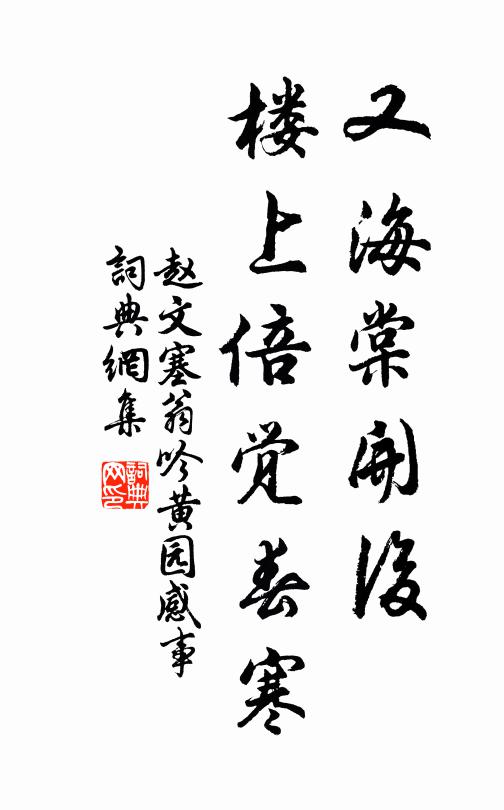 又海棠開後
楼上倍覚春寒
赵文塞翁吟黄园感事
詞典網集
詞典网印